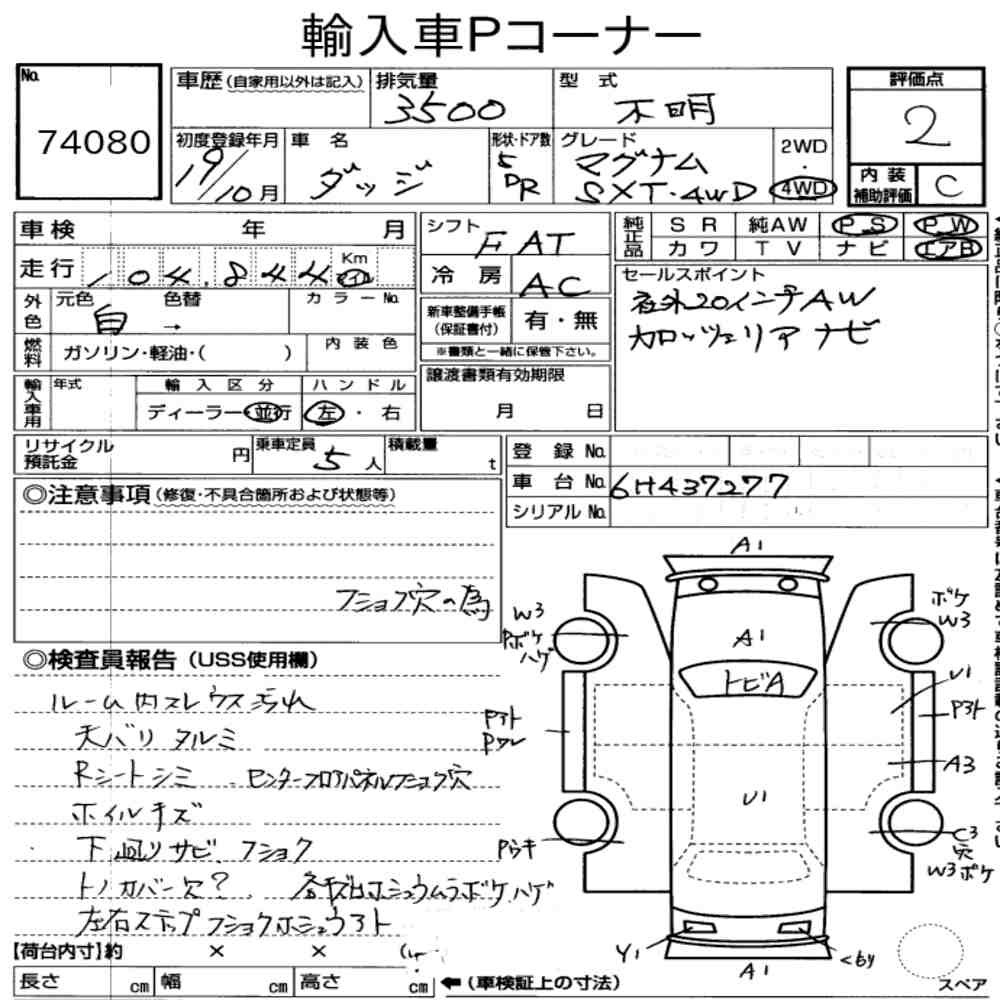 輸入車Pコーナー
No.
74080
車歴(自家用以外は記入)
排気量
3500
型 式
不明
評価点
2
初度登録年月
19/10月
車 名
ダッジ
形状・ドア数
5 DR
グレード
マグナム
SXT・4WD
2WD
・
4WD
内装
補助評価
C
車検 年 月
シフト
FAT
純正品
SR
純AW
PS
PW
カワ
TV
ナビ
エアB
走行
104,844
Km
冷房
AC
セールスポイント
社外20インチAW
カロッツェリアナビ
外色
元色
白
色替
→
カラーNo.
新車整備手帳
(保証書付)
有・無
※書類と一緒に保管下さい。
燃料
ガソリン・軽油・( )
内装色
輸入車用
年式
輸入区分
ディーラー・並行
ハンドル
左・右
譲渡書類有効期限
月 日
リサイクル
預託金
円
乗車定員
5人
積載量
t
登 録 No.
車 台 No.
6H437277
シリアル No.
◎注意事項(修復・不具合箇所および状態等)
フショク穴の為
◎検査員報告(USS使用欄)
ルーム内スレウス汚れ
天バリタルミ
Rシートシミ センターフロアパネルフショク穴
ホイルキズ
下廻りサビ、フショク
トノカバー欠?
左右ステップフショクホシュウアト
A1
A1
トビA
U1
W3
Pボケ
ハゲ
ボケ
W3
U1
Pアト
A3
Pアト
Pワレ
Pウキ
C3
穴
W3ボケ
Y1
A1
スペア
【荷台内寸】約 × ×
長さ cm
幅 cm
高さ cm
←(車検証上の寸法)